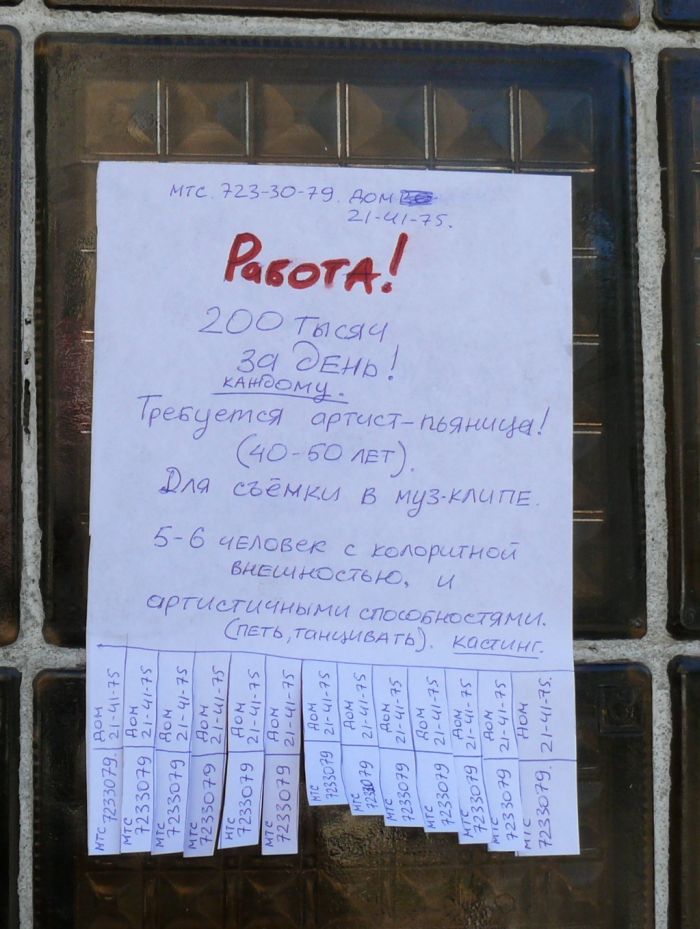 МТС. 723-30-79. ДОМ
21-41-75.
РАБОТА!
200 тысяч
за день!
каждому.
Требуется артист-пьяница!
(40-50 лет).
Для съёмки в муз-клипе.
5-6 человек с колоритной
внешностью, и
артистичными способностями.
(петь, танцивать). кастинг.
МТС 7233079 ДОМ 21-41-75
МТС 7233079 ДОМ 21-41-75
МТС 7233079 ДОМ 21-41-75
МТС 7233079 ДОМ 21-41-75
МТС 7233079 ДОМ 21-41-75
МТС 7233079 ДОМ 21-41-75
МТС 7233079 ДОМ 21-41-75
МТС 7233079 ДОМ 21-41-75
МТС 7233079 ДОМ 21-41-75
МТС 7233079 ДОМ 21-41-75
МТС 7233079 ДОМ 21-41-75
МТС 7233079 ДОМ 21-41-75
МТС 7233079. ДОМ 21-41-75.